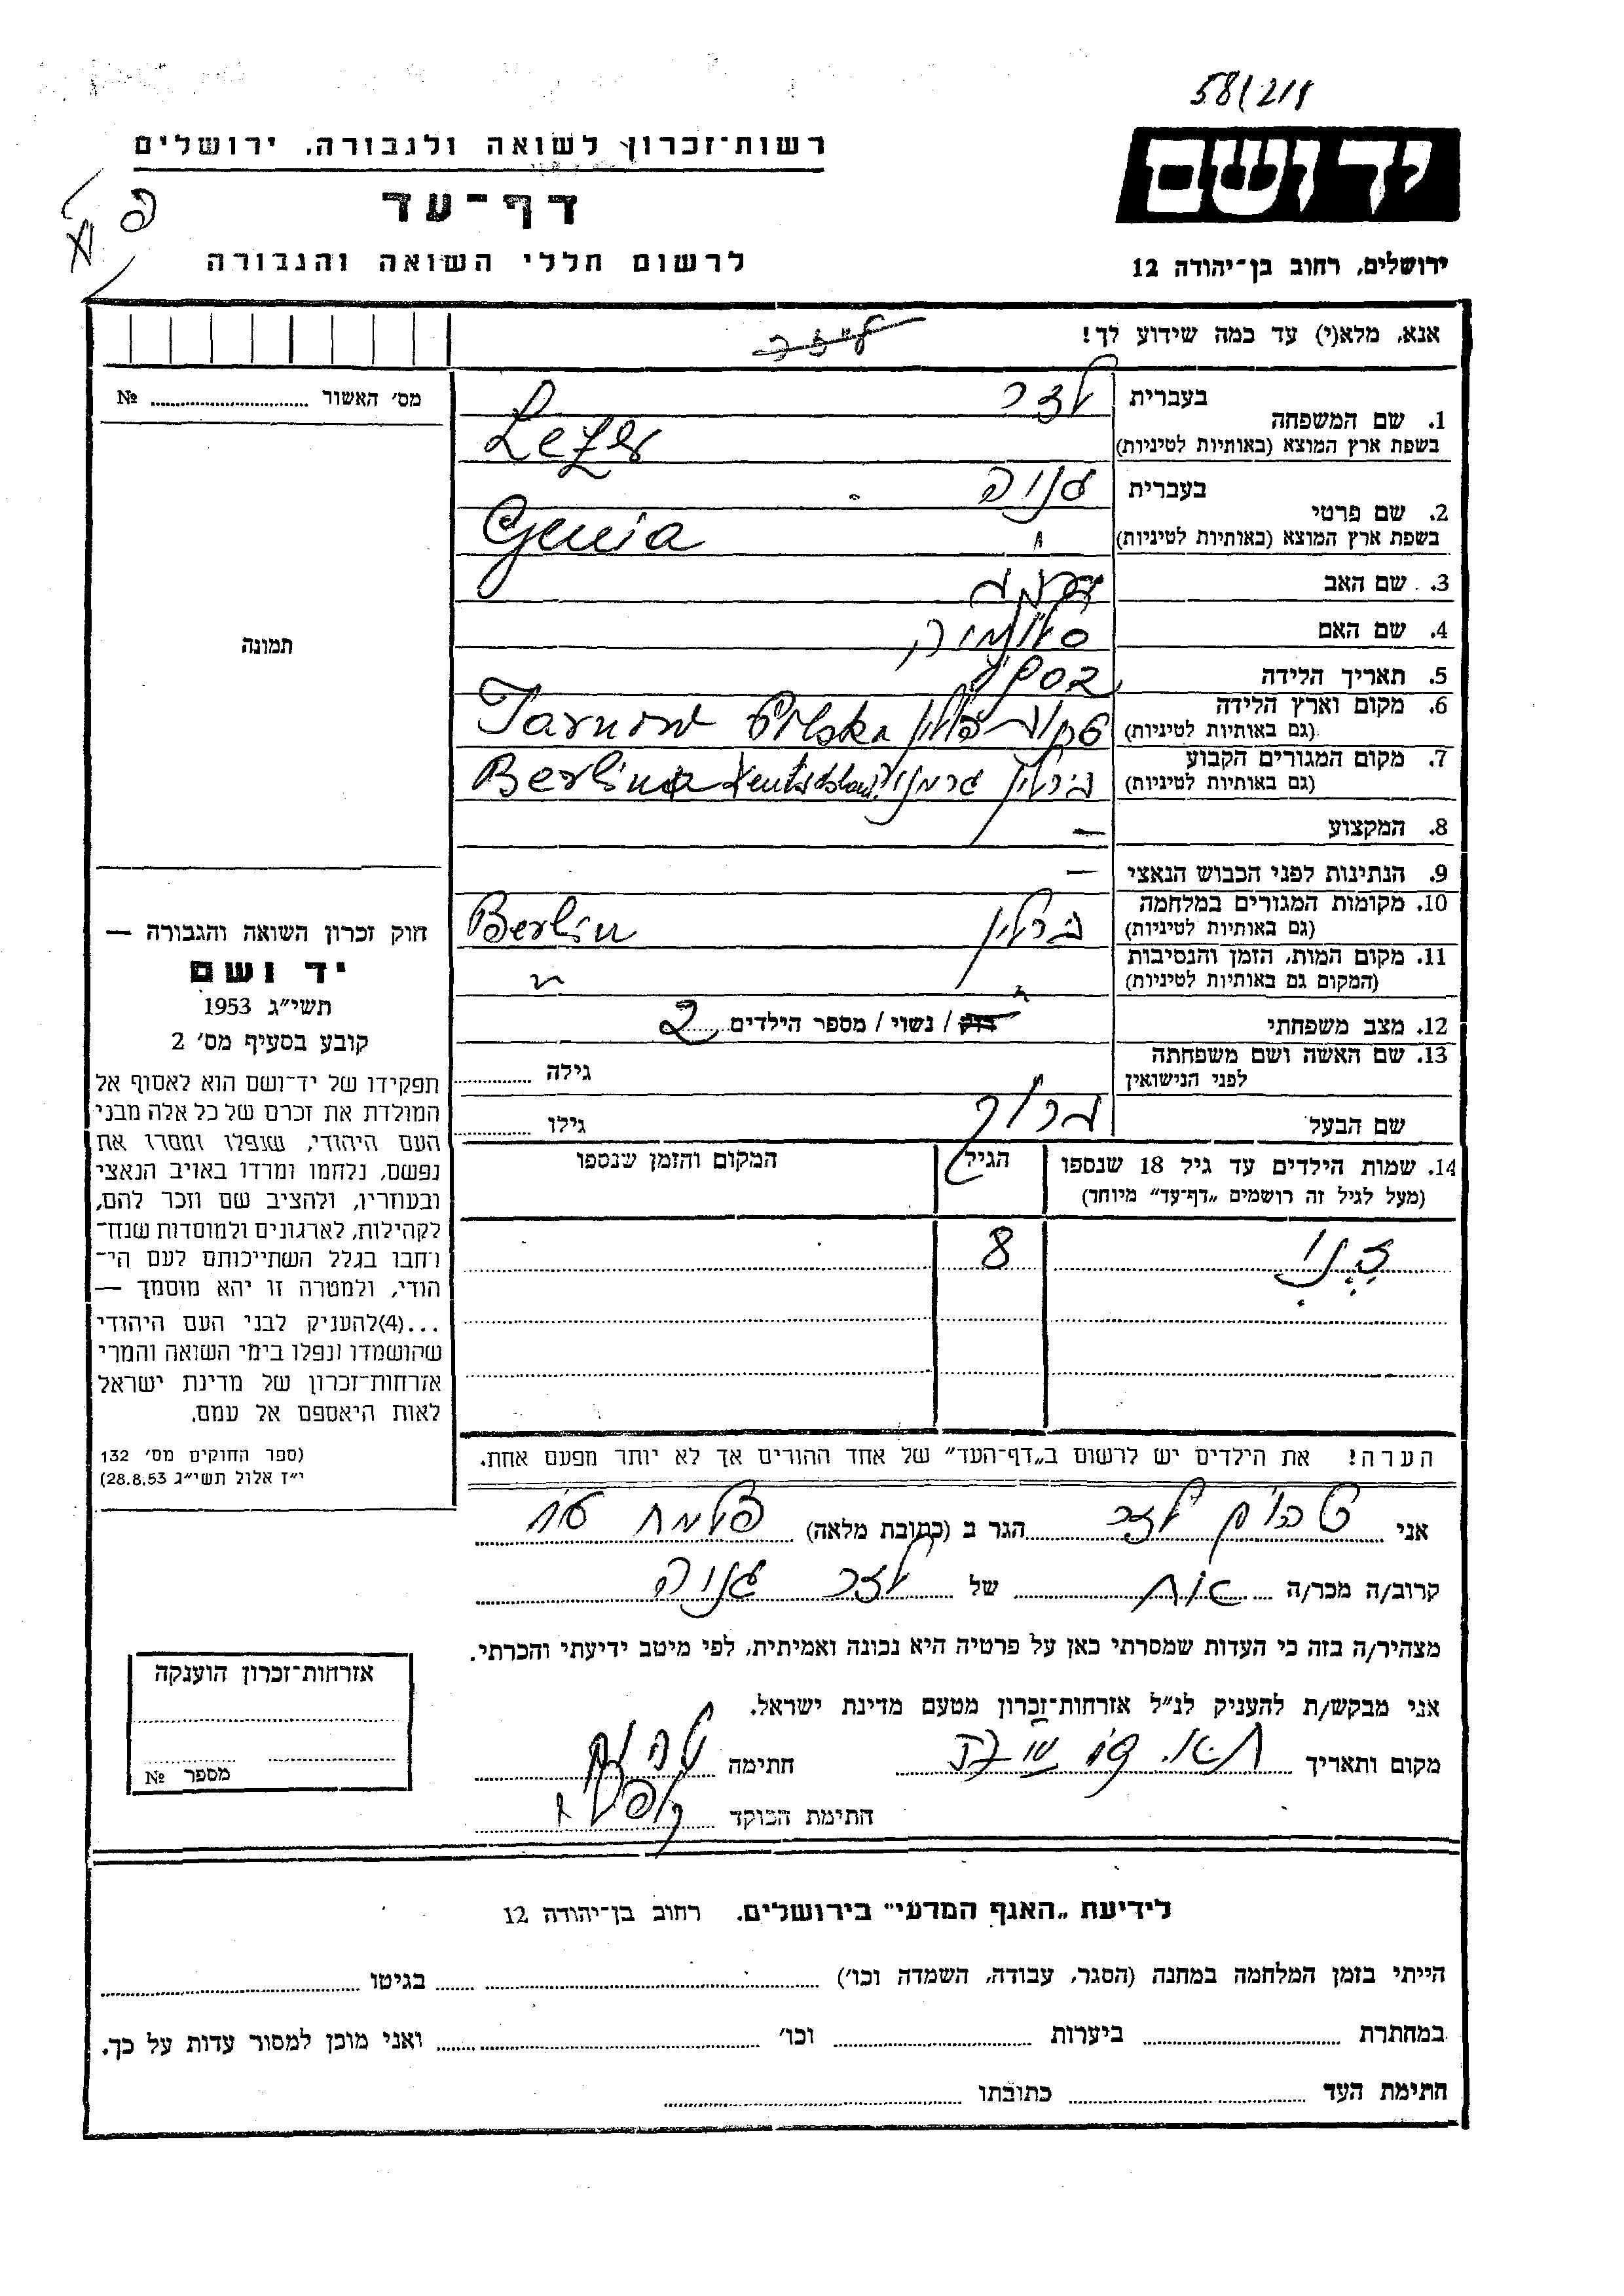 58/218
רשות־זכרון לשואה ולגבורה, ירושלים
יד ושם
דף־עד
לרשום חללי השואה והגבורה
ירושלים, רחוב בן־יהודה 12
אנא, מלא(י) עד כמה שידוע לך!
מס׳ האשור № 
1. שם המשפחה
בעברית לזר
בשפת ארץ המוצא (באותיות לטיניות) Lezer
2. שם פרטי
בעברית גניה
בשפת ארץ המוצא (באותיות לטיניות) Genia
3. שם האב
4. שם האם
5. תאריך הלידה
6. מקום וארץ הלידה
(גם באותיות לטיניות) פולין Tarnow Polska
7. מקום המגורים הקבוע
(גם באותיות לטיניות) ברלין גרמניה Berlin Deutschland
8. המקצוע —
9. הנתינות לפני הכבוש הנאצי —
10. מקומות המגורים במלחמה
(גם באותיות לטיניות) ברלין Berlin
11. מקום המות, הזמן והנסיבות
(המקום גם באותיות לטיניות)
12. מצב משפחתי רוק / נשוי / מספר הילדים 2
13. שם האשה ושם משפחתה
לפני הנישואין גילה
שם הבעל ברוך גילו
14. שמות הילדים עד גיל 18 שנספו הגיל המקום והזמן שנספו
(מעל לגיל זה רושמים „דף־עד״ מיוחד)
8
הערה! את הילדים יש לרשום ב„דף־העד״ של אחד ההורים אך לא יותר מפעם אחת.
תמונה
חוק זכרון השואה והגבורה —
יד ושם
תשי״ג 1953
קובע בסעיף מס׳ 2
תפקידו של יד־ושם הוא לאסוף אל
המולדת את זכרם של כל אלה מבני
העם היהודי, שנפלו ומסרו את
נפשם, נלחמו ומרדו באויב הנאצי
ובעוזריו, ולהציב שם וזכר להם,
לקהילות, לארגונים ולמוסדות שנח־
רחבו בגלל השתייכותם לעם הי־
הודי, ולמטרה זו יהא מוסמך —
...(4)להעניק לבני העם היהודי
שהושמדו ונפלו בימי השואה והמרי
אזרחות־זכרון של מדינת ישראל
לאות היאספם אל עמם.
(ספר החוקים מס׳ 132
י״ז אלול תשי״ג 28.8.53)
אני לזר הגר ב (כתובת מלאה)
קרוב/ה מכר/ה של לזר גניה
מצהיר/ה בזה כי העדות שמסרתי כאן על פרטיה היא נכונה ואמיתית, לפי מיטב ידיעתי והכרתי.
אני מבקש/ת להעניק לנ״ל אזרחות־זכרון מטעם מדינת ישראל.
מקום ותאריך חתימה
חתימת הפוקד
אזרחות־זכרון הוענקה
מספר №
לידיעת „האגף המדעי״ בירושלים. רחוב בן־יהודה 12
הייתי בזמן המלחמה במחנה (הסגר, עבודה, השמדה וכו׳) בגיטו
במחתרת ביערות וכו׳ ואני מוכן למסור עדות על כך.
חתימת העד כתובתו